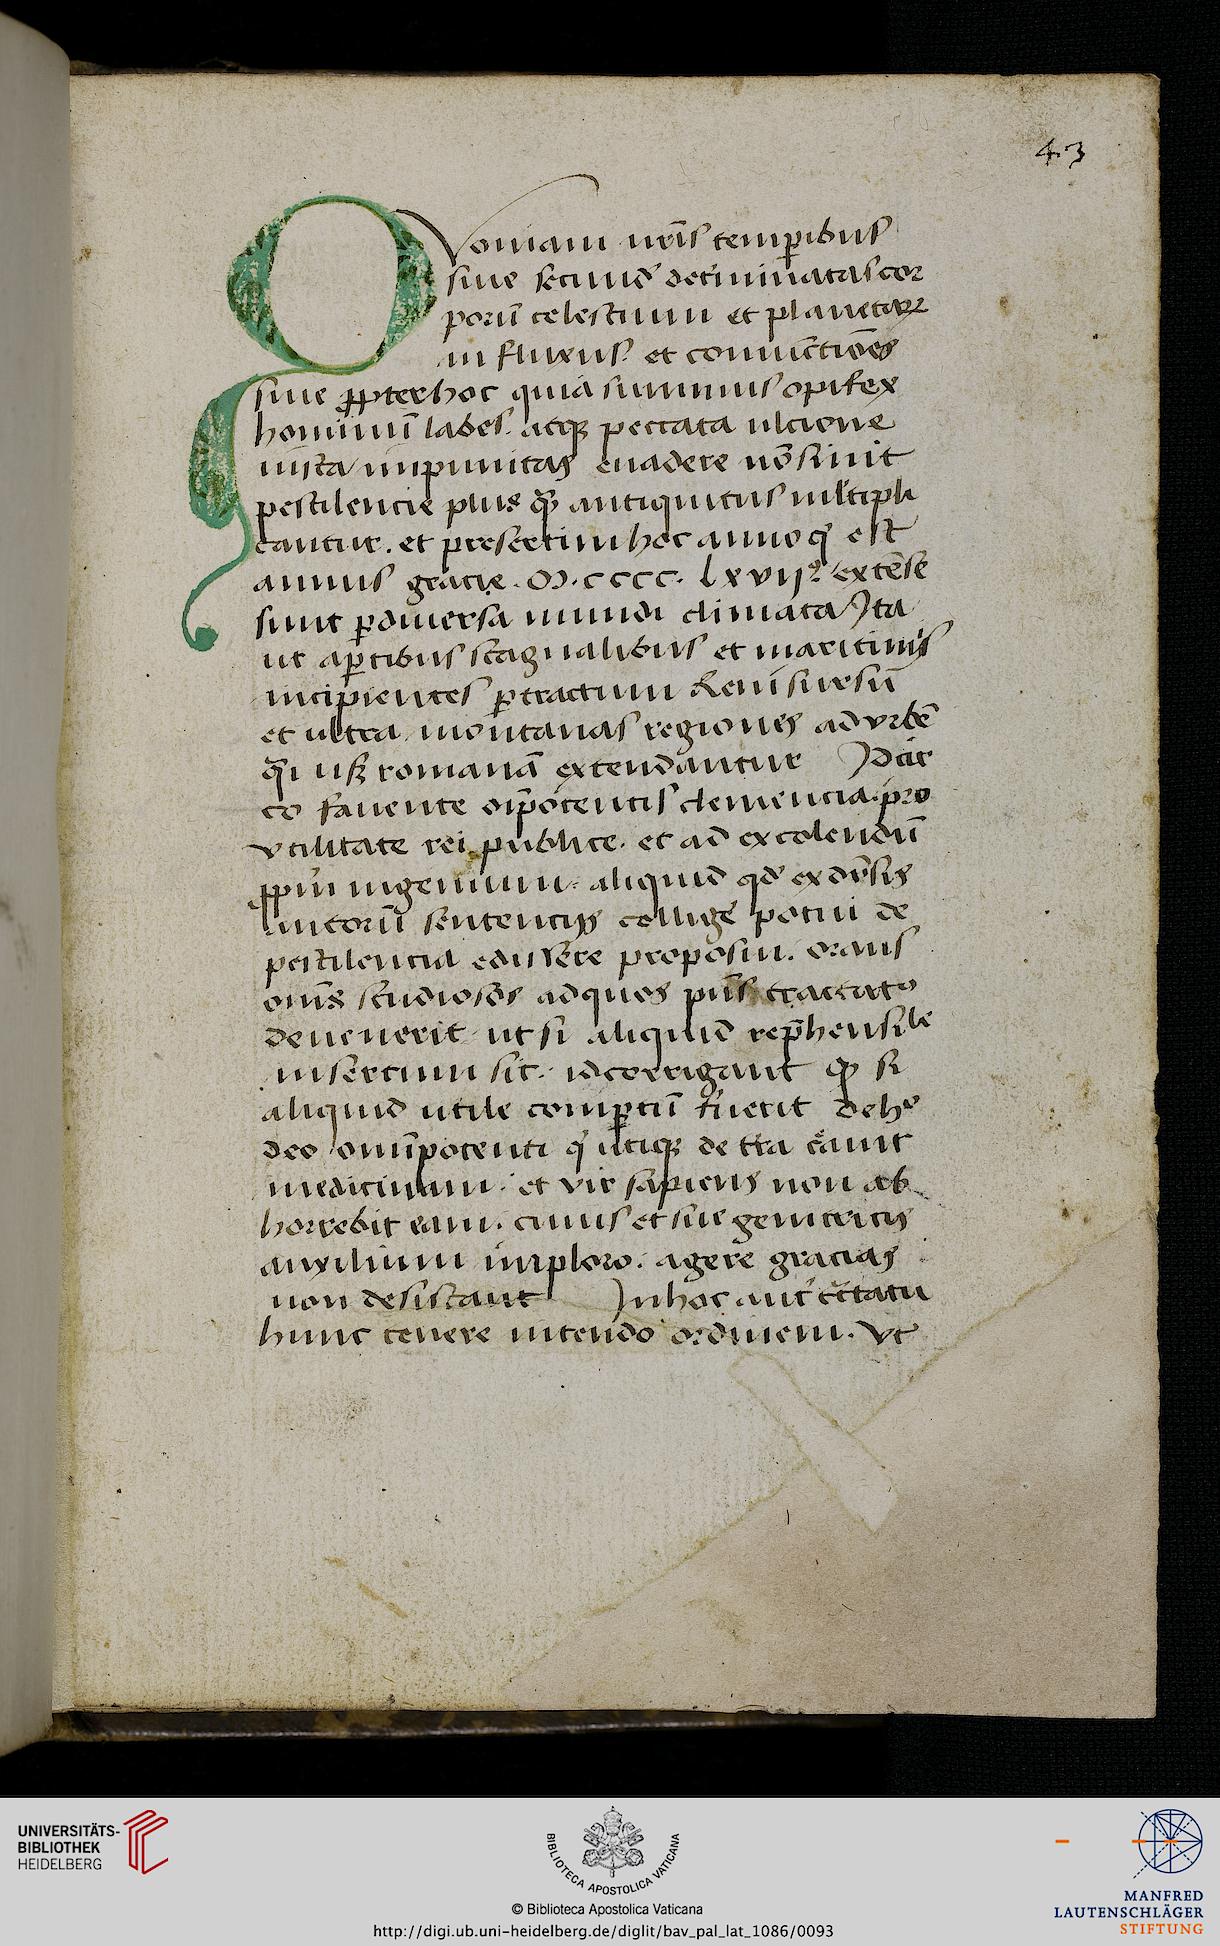 43
Qvoniam nr̄is temꝑibus
siue secūnd' det'minatas cor
porū celestium et planetaꝝ
influxus. et coniunctiōes
siue ꝓpter hoc quia summus opifex
hominū labes. atqꝫ peccata ulcione
iusta impunitas euadere nō sinit
pestilencie plus qꝫ̄ antiquitus m̄ltipli
cantur. et presertim hoc anno q̄ est
annus gracie. M.cccc. lxvij.º extēse
sunt ꝑ diuersa mundi climata Ita
ut a ꝑtibus stagnalibus et maritimis
incipientes ꝑ tractum Reni sursū
et ultra montanas regiones ad vrbē
q̄si usqꝫ romanā extendantur Idcir
co fauente oīpotentis clemencia. pro
vtilitate rei publice. et ad excolendū
ꝓpriū ingenium. aliquid qd' ex diu'sis
autorū sentencijs collige' potui de
pestilencia edissere proposui. orans
omēs studiosos ad quos pn̄s tractatꝰ
deuenerit ut si aliquid rep̄hensibile
insertum sit. id corrigant qꝫ si
aliquid utile comꝑtū fuerit de hº
deo omīpotenti q̄ utiqꝫ de tr̄a c'auit
medicinam. et vir sapiens non ab
horrebit eam. cuius et sue genitricis
auxilium imploro. agere gracias
non desistant In hoc aut' tractatu
hunc tenere intendo ordinem. Vt
UNIVERSITÄTS-
BIBLIOTHEK
HEIDELBERG
BIBLIOTECA APOSTOLICA VATICANA
© Biblioteca Apostolica Vaticana
http://digi.ub.uni-heidelberg.de/diglit/bav_pal_lat_1086/0093
MANFRED
LAUTENSCHLÄGER
STIFTUNG